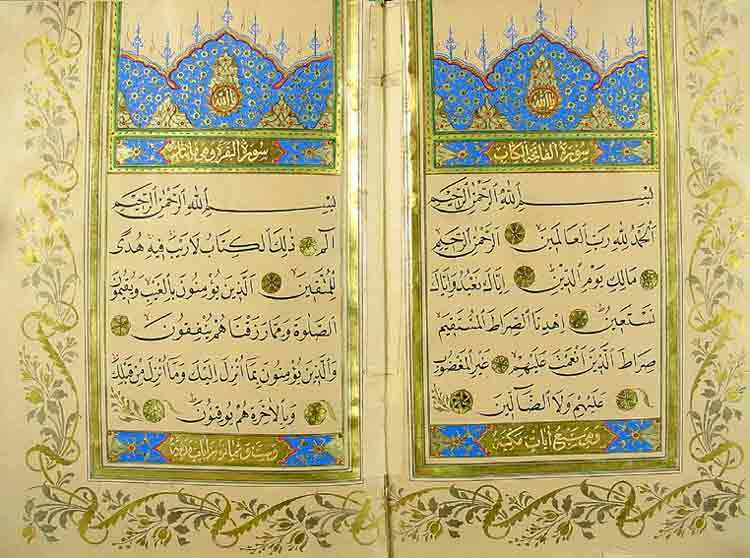 سورة الفاتحة الكتاب
بِسْمِ اللهِ الرَّحْمٰنِ الرَّحِيمِ
اَلْحَمْدُ لِلّٰهِ رَبِّ الْعَالَمِينَ اَلرَّحْمٰنِ الرَّحِيمِ
مَالِكِ يَوْمِ الدِّينِ اِيَّاكَ نَعْبُدُ وَاِيَّاكَ
نَسْتَعِينُ اِهْدِنَا الصِّرَاطَ الْمُسْتَقِيمَ
صِرَاطَ الَّذِينَ اَنْعَمْتَ عَلَيْهِمْ غَيْرِ الْمَغْضُوبِ
عَلَيْهِمْ وَلَا الضَّالِّينَ
وهي سبع آيات مكية
سورة البقرة وهي
بِسْمِ اللهِ الرَّحْمٰنِ الرَّحِيمِ
الٓمٓ ذٰلِكَ الْكِتَابُ لَا رَيْبَ فِيهِ هُدًى
لِلْمُتَّقِينَ اَلَّذِينَ يُؤْمِنُونَ بِالْغَيْبِ وَيُقِيمُونَ
الصَّلٰوةَ وَمِمَّا رَزَقْنَاهُمْ يُنْفِقُونَ
وَالَّذِينَ يُؤْمِنُونَ بِمَا اُنْزِلَ اِلَيْكَ وَمَا اُنْزِلَ مِنْ قَبْلِكَ
وَبِالْاٰخِرَةِ هُمْ يُوقِنُونَ